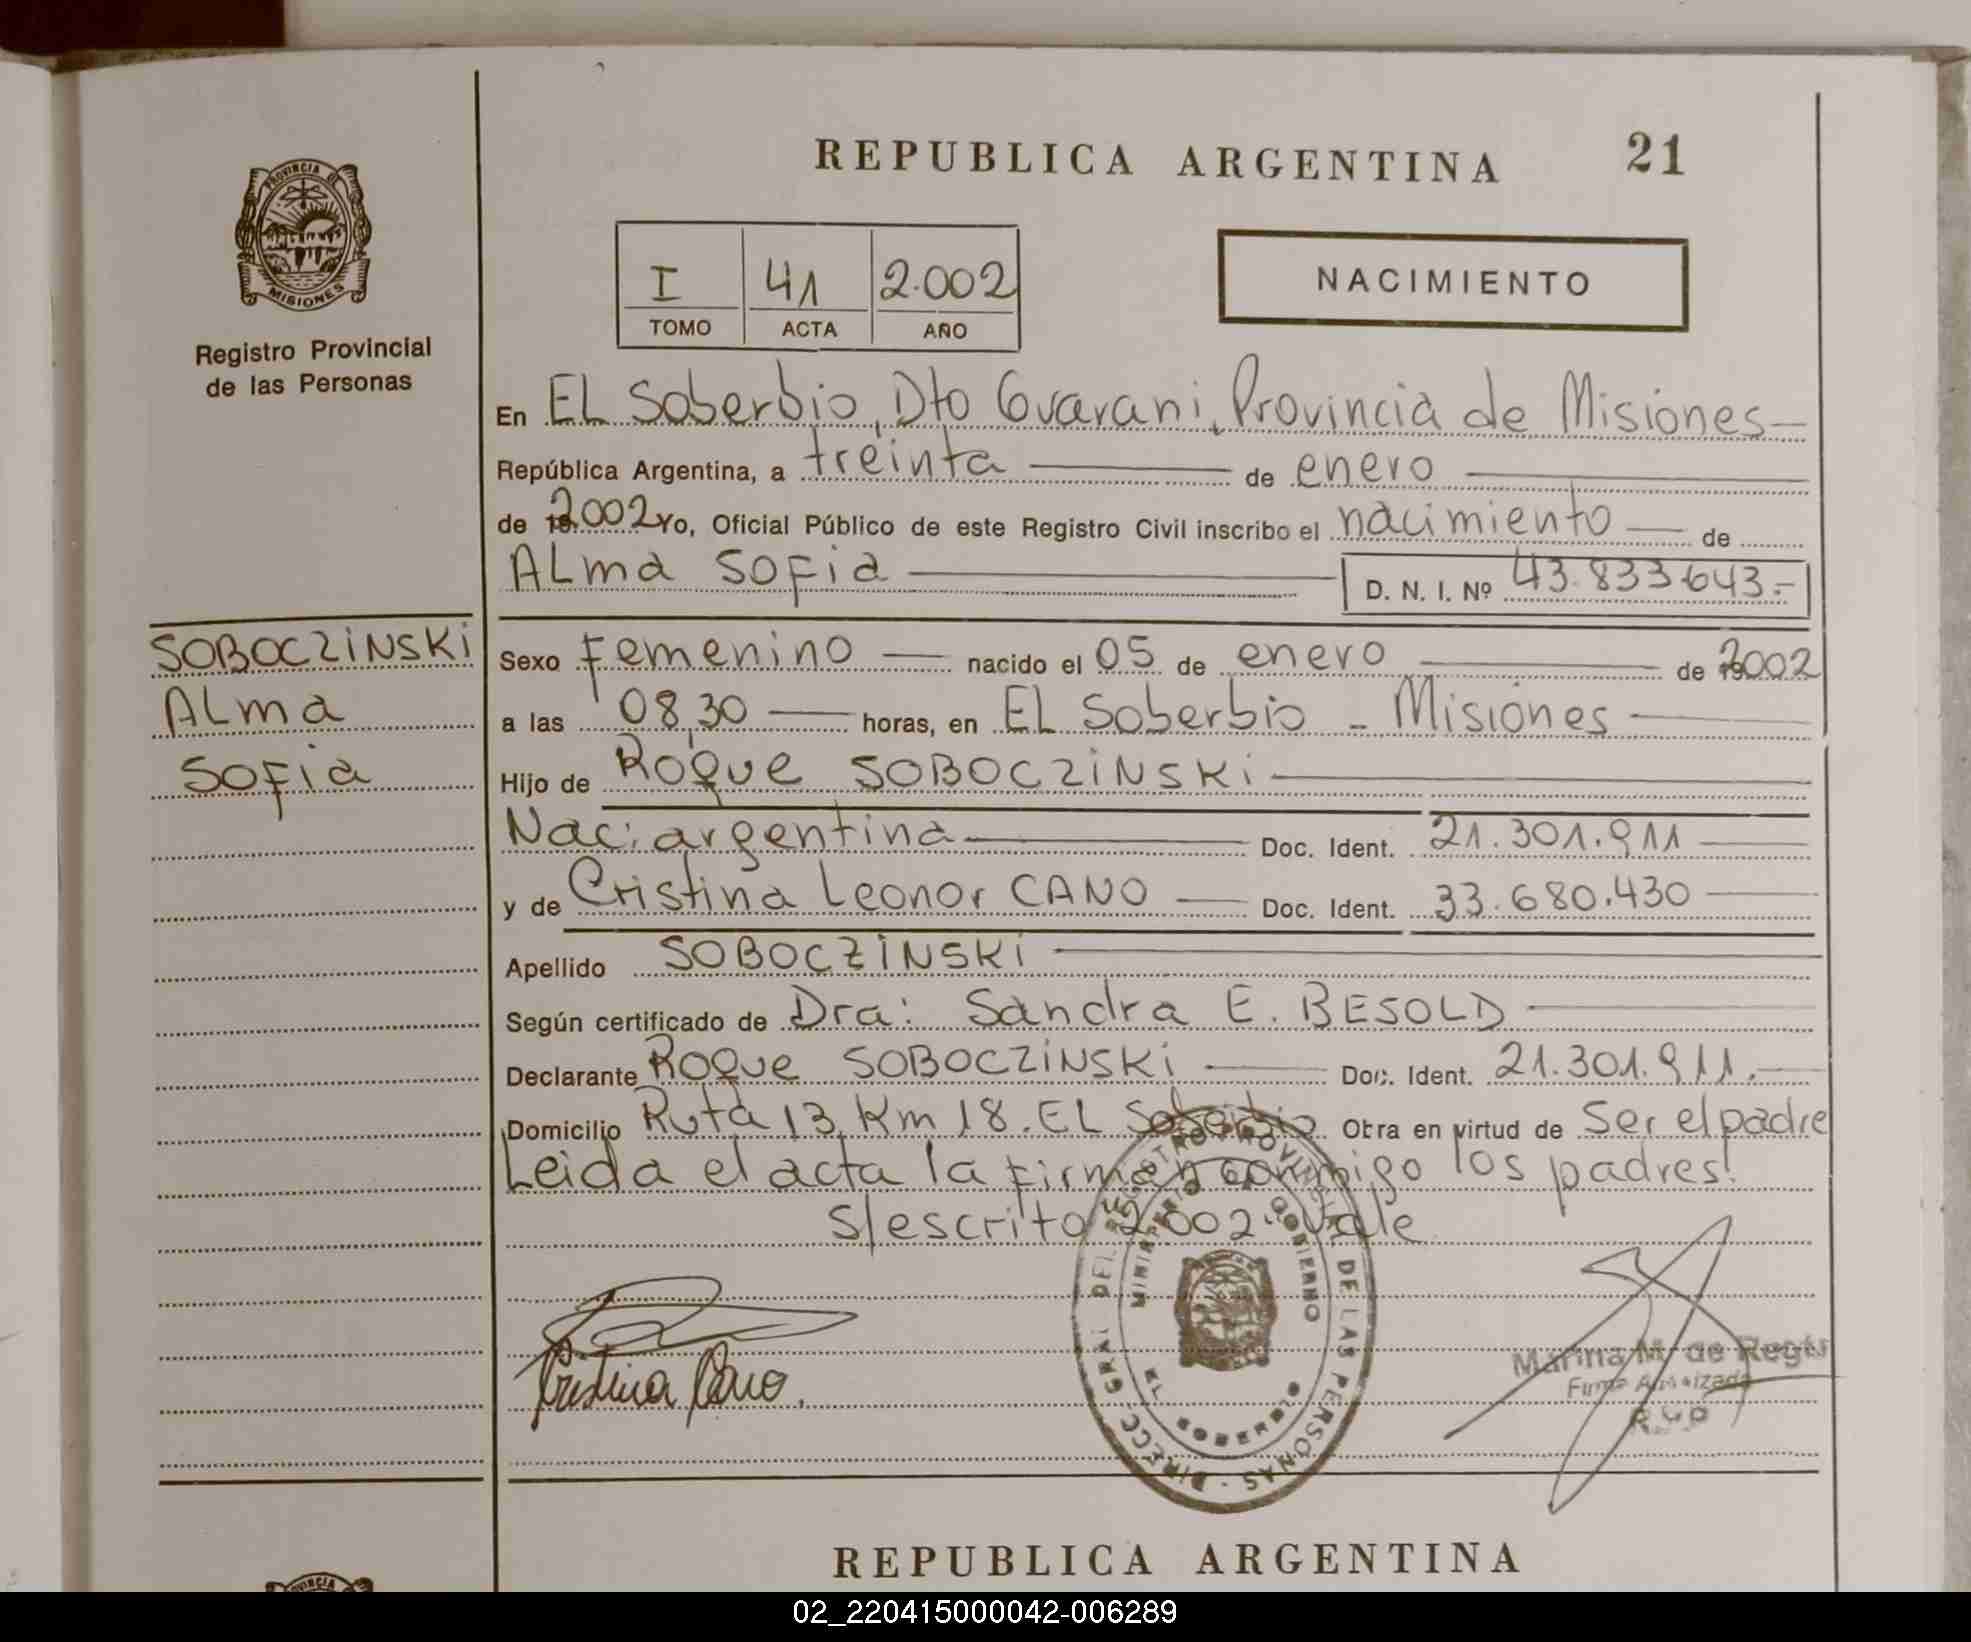 REPUBLICA ARGENTINA 21
PROVINCIA DE
MISIONES
Registro Provincial
de las Personas
I 41 2.002
TOMO ACTA AÑO
NACIMIENTO
En EL Soberbio, Dto Guarani, Provincia de Misiones
República Argentina, a treinta de enero
de 2002 Yo, Oficial Público de este Registro Civil inscribo el nacimiento de
ALma SOFia D. N. I. Nº 43.833.643.-
SOBOCZINSKI
ALma
SOFia
Sexo Femenino nacido el 05 de enero de 2002
a las 08,30 horas, en EL Soberbio - Misiones
Hijo de Roque SOBOCZINSKI
Nac: argentina Doc. Ident. 21.301.911
y de Cristina Leonor CANO Doc. Ident. 33.680.430
Apellido SOBOCZINSKI
Según certificado de Dra: Sandra E. BESOLD
Declarante Roque SOBOCZINSKI Doc. Ident. 21.301.911.
Domicilio Ruta 13 Km 18. EL Soberbio Obra en virtud de Ser el padre
Leida el acta la firman conmigo los padres.
S/escrito 2002. Vale
Cristina Cano.
DIRECC. GRAL. DEL REGISTRO PROVINCIAL DE LAS PERSONAS
MINISTERIO DE GOBIERNO
EL SOBERBIO
Marina M. de Regis
Firma Autorizada
R.P.P
REPUBLICA ARGENTINA
PROVINCIA
02_220415000042-006289